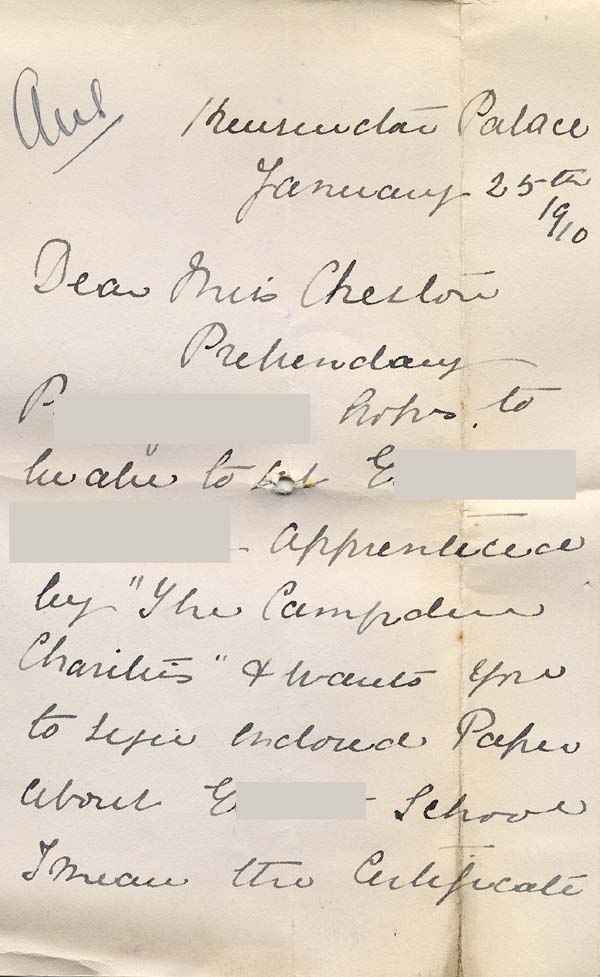 Ans
Kensington Palace
January 25th
1910
Dear Miss Cheston
Prebendary
P hopes to
be able to get E
Apprenticed
by "The Campden
Charities" & wants you
to sign enclosed Paper
about E School
I mean the Certificate